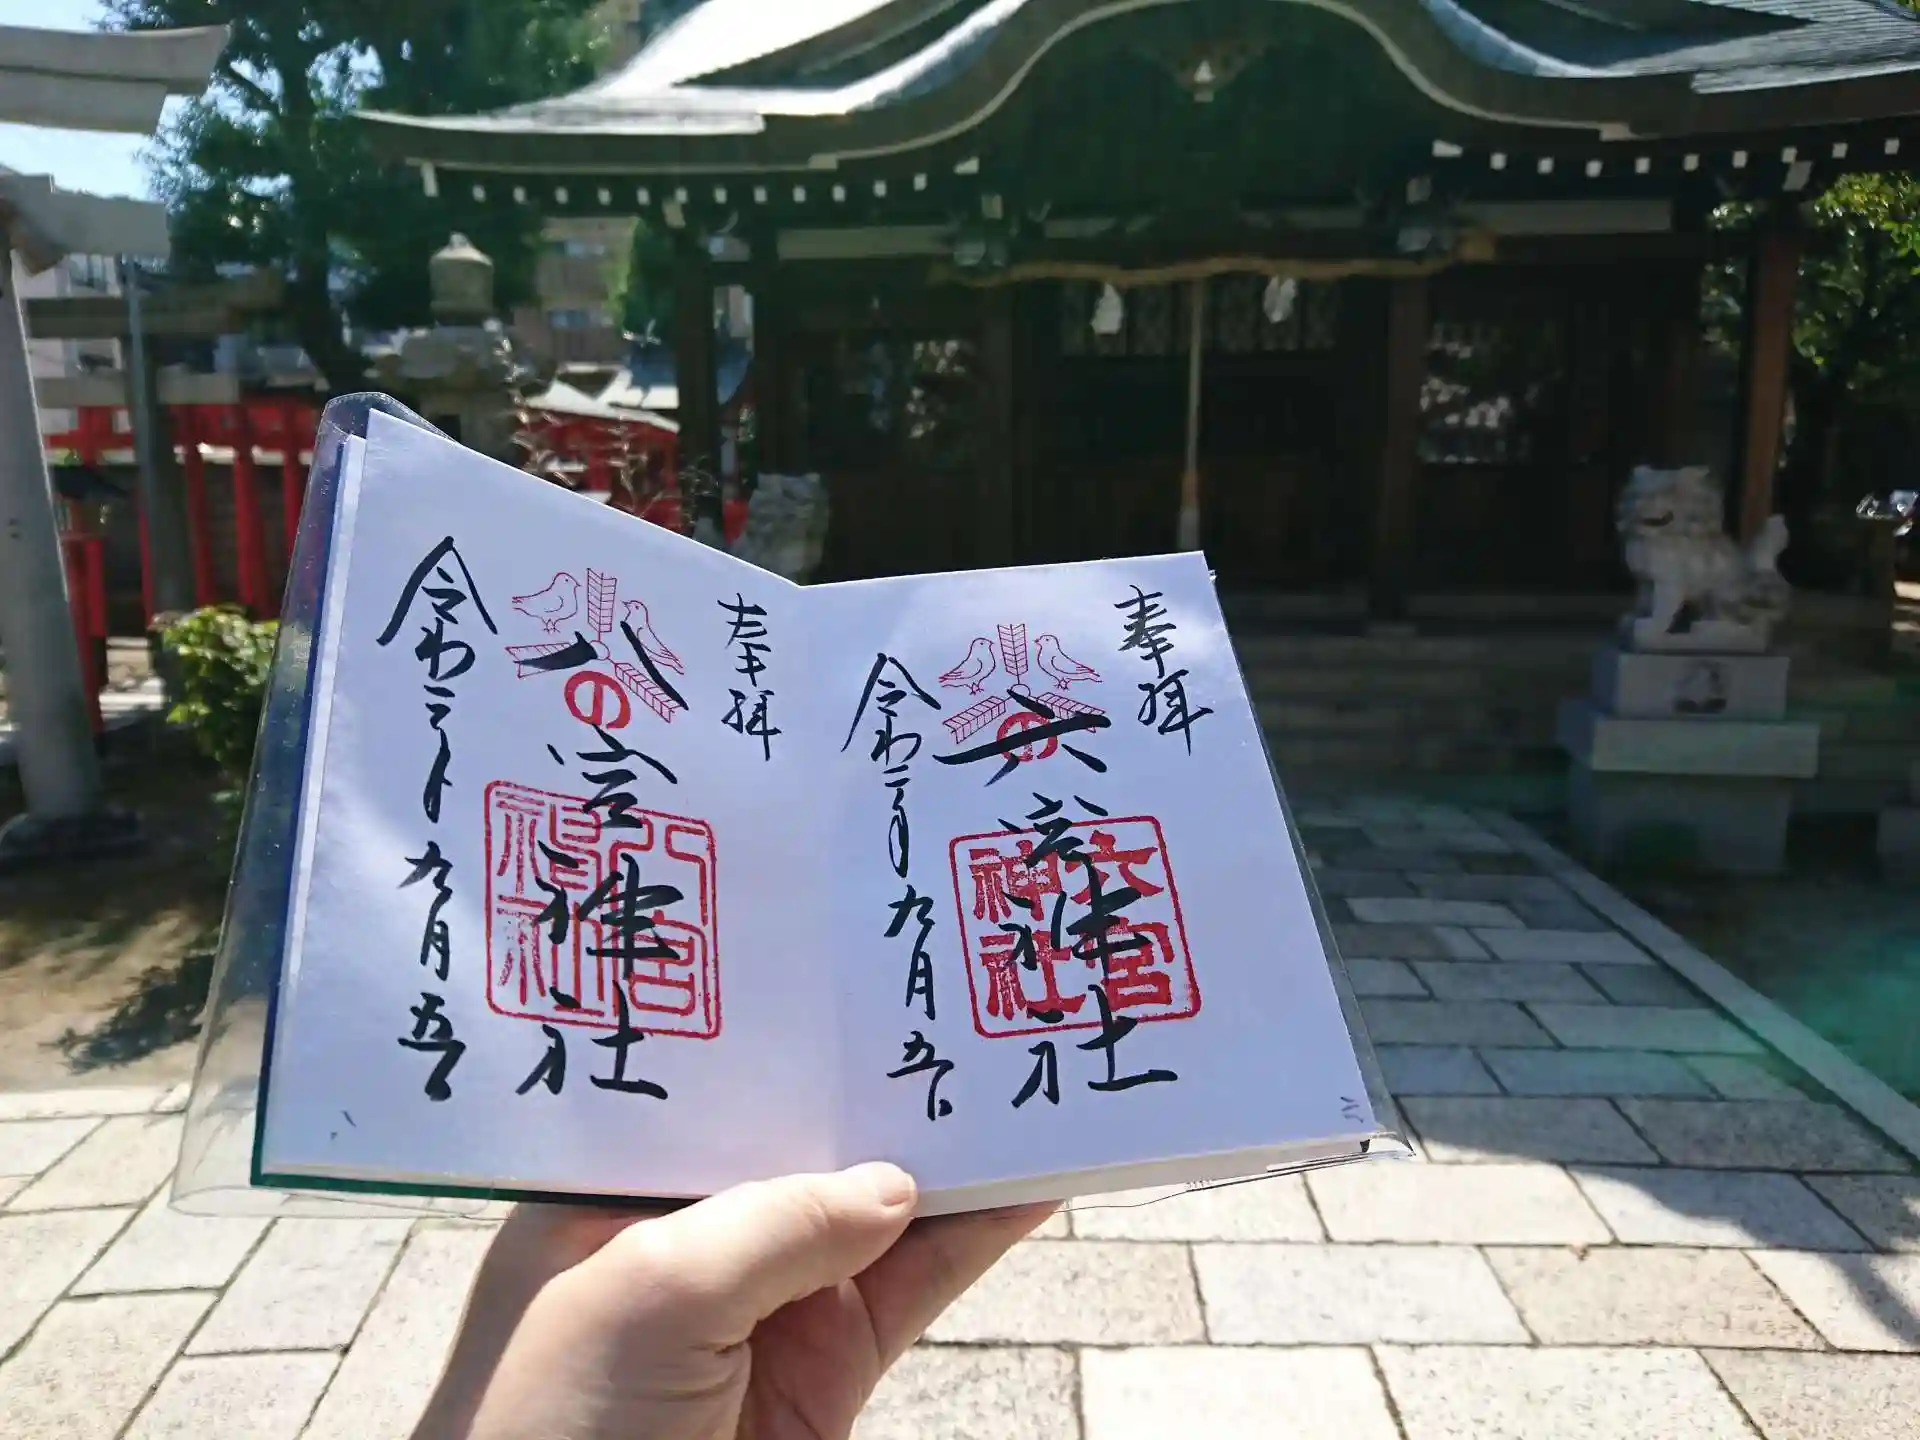 奉拝
六宮神社
の
六宮
神社
令和三年九月五日
奉拝
八宮神社
の
八宮
神社
令和三年九月五日